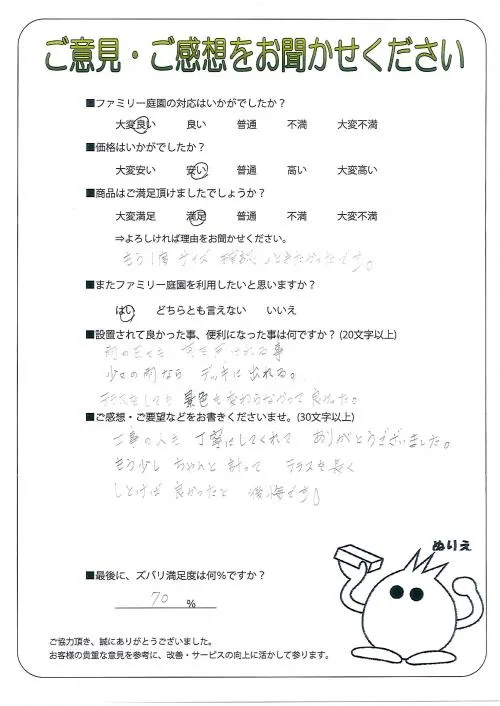 ご意見・ご感想をお聞かせください
■ファミリー庭園の対応はいかがでしたか？
大変良い 良い 普通 不満 大変不満
■価格はいかがでしたか？
大変安い 安い 普通 高い 大変高い
■商品はご満足頂けましたでしょうか？
大変満足 満足 普通 不満 大変不満
⇒よろしければ理由をお聞かせください。
もう1度サイズ 確認しときたかったです。
■またファミリー庭園を利用したいと思いますか？
はい どちらとも言えない いいえ
■設置されて良かった事、便利になった事は何ですか？(20文字以上)
雨の日でも 出れる事
少々の雨なら デッキに出れる。
テラスをしても 景色も変わらなくて良かった。
■ご感想・ご要望などをお書きくださいませ。(30文字以上)
工事の人も 丁寧にしてくれて ありがとうございました。
もう少し ちゃんと計って テラスを長く
しとけば良かったと 後悔です。
ぬりえ
■最後に、ズバリ満足度は何％ですか？
70 ％
ご協力頂き、誠にありがとうございました。
お客様の貴重な意見を参考に、改善・サービスの向上に活かして参ります。